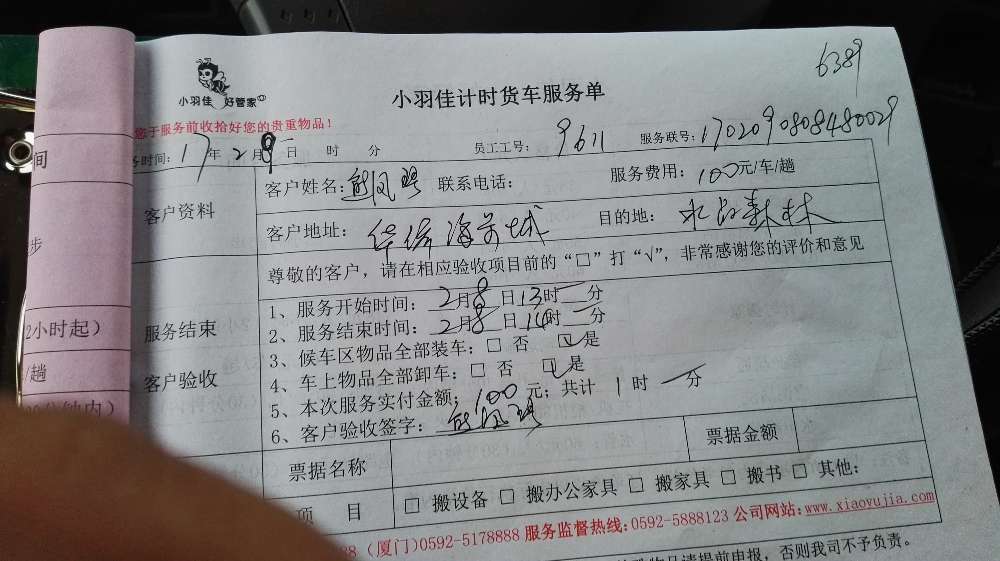 6389
小羽佳 好管家
小羽佳计时货车服务单
您于服务前收拾好您的贵重物品！
务时间：17年2月8日 时 分 员工工号：9611 服务联号：1702090808480029
客户资料
客户姓名：熊凤 联系电话： 服务费用：100元/车/趟
客户地址：华侨海景城 目的地：水晶森林
尊敬的客户，请在相应验收项目前的“□”打“√”，非常感谢您的评价和意见
服务结束
客户验收
1、服务开始时间：2月8日13时一分
2、服务结束时间：2月8日14时一分
3、候车区物品全部装车：□ 否 ☑是
4、车上物品全部卸车：□ 否 ☑是
5、本次服务实付金额：100元；共计 1 时 一 分
6、客户验收签字：熊凤
票据名称 票据金额
项 目 □ 搬设备 □ 搬办公家具 □ 搬家具 □ 搬书 □ 其他：
88（厦门）0592-5178888 服务监督热线：0592-5888123 公司网站：www.xiaoyujia.com
物品请提前申报，否则我司不予负责。
间
步
2小时起）
/趟
分钟内）